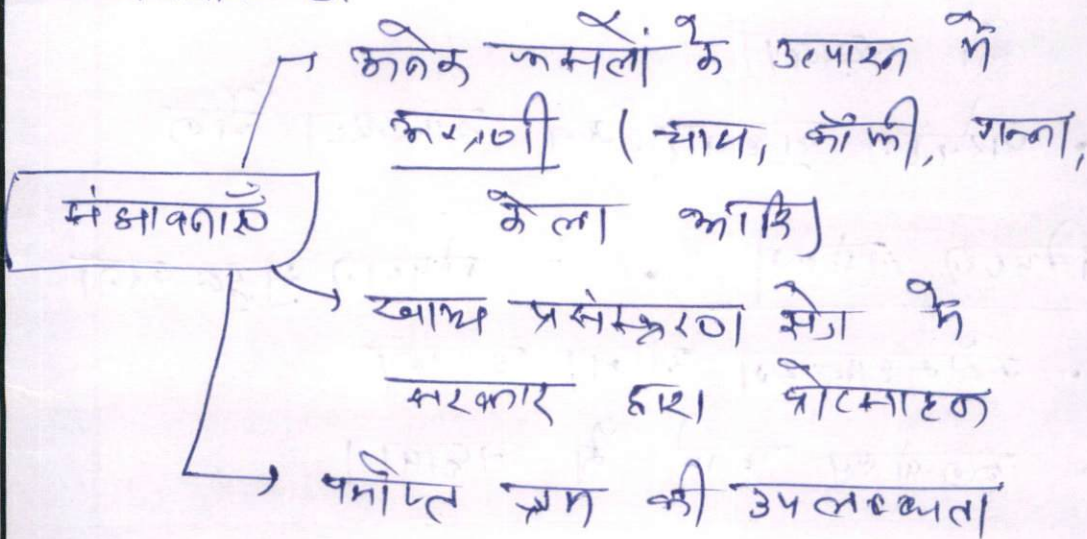 अनेक फसलों के उत्पादन में
अग्रणी (चाय, कॉफी, गन्ना,
संभावनाएँ
केला आदि)
खाद्य प्रसंस्करण क्षेत्र में
सरकार द्वारा प्रोत्साहन
पर्याप्त श्रम की उपलब्धता